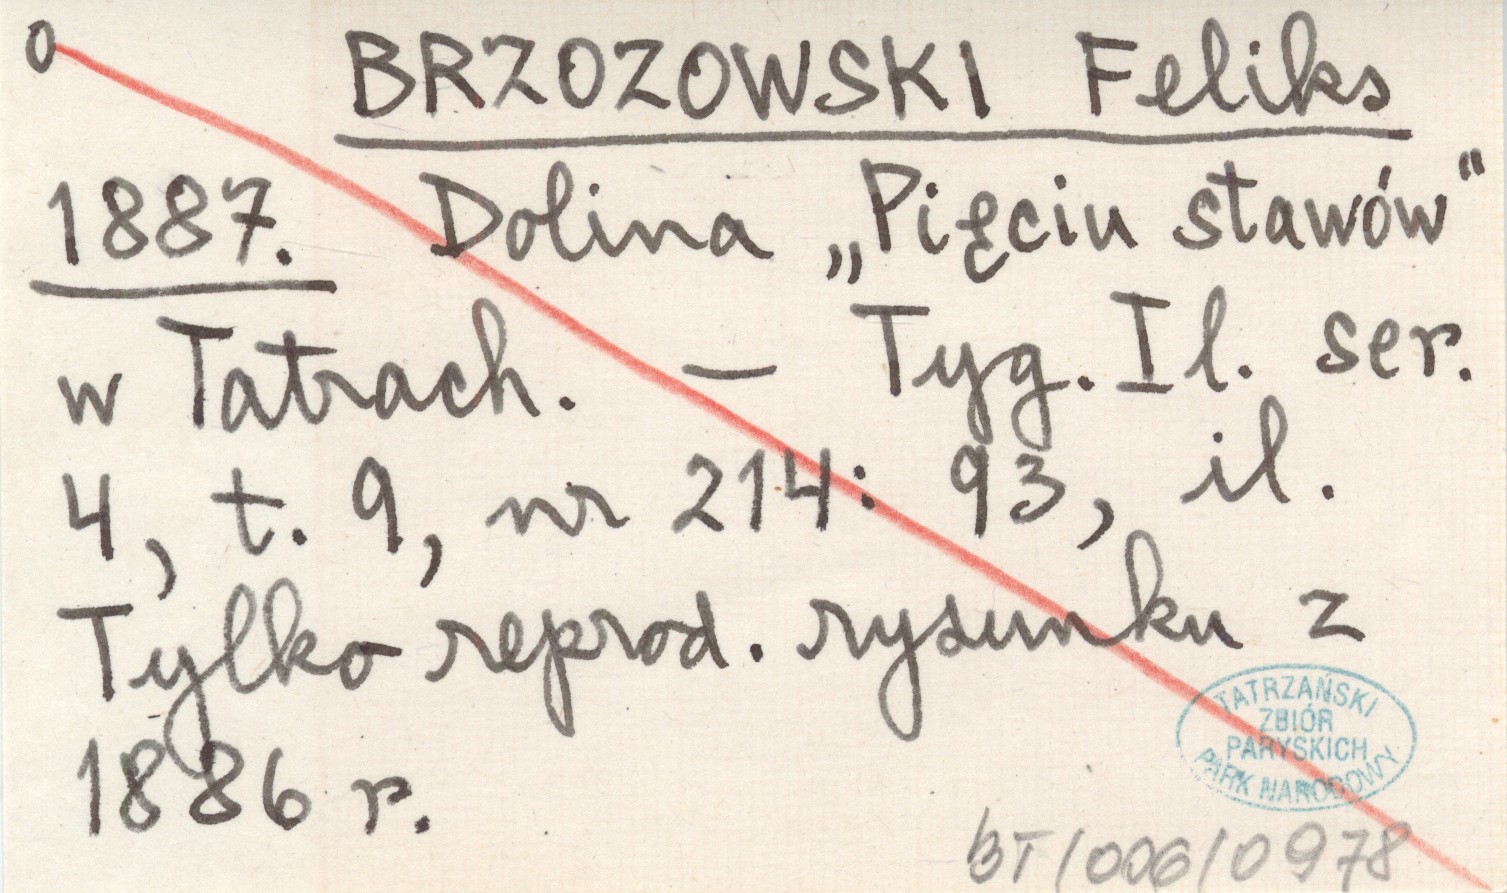 0 BRZOZOWSKI Feliks
1887. Dolina „Pięciu stawów"
w Tatrach. — Tyg. Il. ser.
4, t. 9, nr 214: 93, il.
Tylko reprod. rysunku z
1886 r.
TATRZAŃSKI
ZBIÓR
PARYSKICH
PARK NARODOWY
BT/006/0978